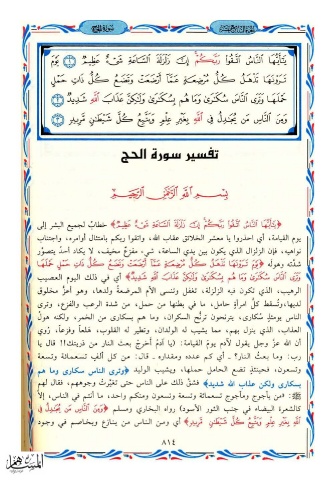 سورة الحج
يَٰٓأَيُّهَا ٱلنَّاسُ ٱتَّقُوا۟ رَبَّكُمْ ۚ إِنَّ زَلْزَلَةَ ٱلسَّاعَةِ شَىْءٌ عَظِيمٌ ١ يَوْمَ
تَرَوْنَهَا تَذْهَلُ كُلُّ مُرْضِعَةٍ عَمَّآ أَرْضَعَتْ وَتَضَعُ كُلُّ ذَاتِ حَمْلٍ
حَمْلَهَا وَتَرَى ٱلنَّاسَ سُكَٰرَىٰ وَمَا هُم بِسُكَٰرَىٰ وَلَٰكِنَّ عَذَابَ ٱللَّهِ شَدِيدٌ ٢
وَمِنَ ٱلنَّاسِ مَن يُجَٰدِلُ فِى ٱللَّهِ بِغَيْرِ عِلْمٍ وَيَتَّبِعُ كُلَّ شَيْطَٰنٍ مَّرِيدٍ ٣
تفسير سورة الحج
بِسْمِ ٱللَّهِ ٱلرَّحْمَٰنِ ٱلرَّحِيمِ
﴿يَٰٓأَيُّهَا ٱلنَّاسُ ٱتَّقُوا۟ رَبَّكُمْ إِنَّ زَلْزَلَةَ ٱلسَّاعَةِ شَىْءٌ عَظِيمٌ﴾ خطابٌ لجميع البشر إلى
يوم القيامة، أي احذروا يا معشر الخلائق عقاب الله، واتقوا ربكم بامتثال أوامره، واجتناب
نواهيه، فإن الزلزال الذي يكون بين يدي الساعة، شيء مفزعٌ مخيف، لا يكاد أحدٌ يتصوَّر
شدَّته وهوله ﴿يَوْمَ تَرَوْنَهَا تَذْهَلُ كُلُّ مُرْضِعَةٍ عَمَّآ أَرْضَعَتْ وَتَضَعُ كُلُّ ذَاتِ حَمْلٍ
حَمْلَهَا وَتَرَى ٱلنَّاسَ سُكَٰرَىٰ وَمَا هُم بِسُكَٰرَىٰ وَلَٰكِنَّ عَذَابَ ٱللَّهِ شَدِيدٌ﴾ أي في ذلك اليوم العصيب
الرهيب، الذي تكون فيه الزلزلة، تغفل وتنسى الأم المرضعة ولدها، وهو أعزُّ مخلوق
لديها، وتُسقط كلُّ امرأةٍ حامل، ما في بطنها من حمل، من شدة الرعب والفزع، وترى
الناس يومئذٍ سكارى، يترنحون ترنُّح السكران، وما هم بسكارى من الخمر، ولكنه هولُ
العذاب، الذي ينزل بهم، مما يشيب له الولدان، وتطير له القلوب، هلعاً وفزعاً، رُوي
أن الله عزَّ وجل يقول لآدم يومَ القيامة: (يا آدمُ أخرجْ بعثَ النار من ذريتك!! قال يا
رب: وما بعثُ النار؟ ـ أي كم عدده ومقداره ـ قال: من كل ألفٍ تسعمائة وتسعة
وتسعون، فحينئذٍ تضع الحامل حملها، ويشيب الوليد ﴿وترى الناس سكارى وما هم
بسكارى ولكن عذاب الله شديد﴾ فشقَّ ذلك على الناس حتى تغيَّرت وجوههم، فقال لهم
ﷺ: «من يأجوج ومأجوج تسعمائة وتسعة وتسعون ومنكم واحد، ما أنتم في الناس، إلاَّ
كالشعرة البيضاء في جنب الثور الأسود) رواه البخاري ومسلم ﴿وَمِنَ ٱلنَّاسِ مَن يُجَٰدِلُ فِى
ٱللَّهِ بِغَيْرِ عِلْمٍ وَيَتَّبِعُ كُلَّ شَيْطَٰنٍ مَّرِيدٍ﴾ أي ومن الناس من ينازع ويخاصم في وجود
٨١٤